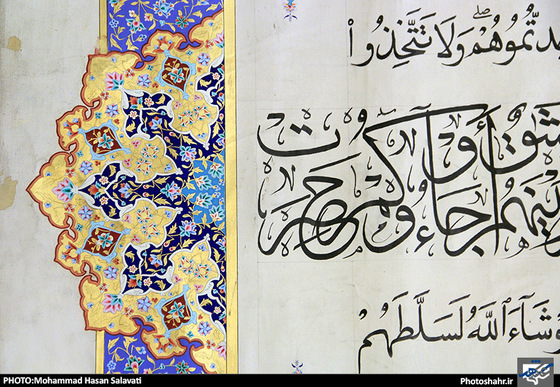 دتُّمُوهُمْ ۖ وَلَا تَتَّخِذُوا
يْنَهُم ثَٰقٌ أَوْ جَآءُوكُمْ حَصِرَتْ
شَآءَ ٱللَّهُ لَسَلَّطَهُمْ
PHOTO:Mohammad Hasan Salavati
Photoshahr.ir